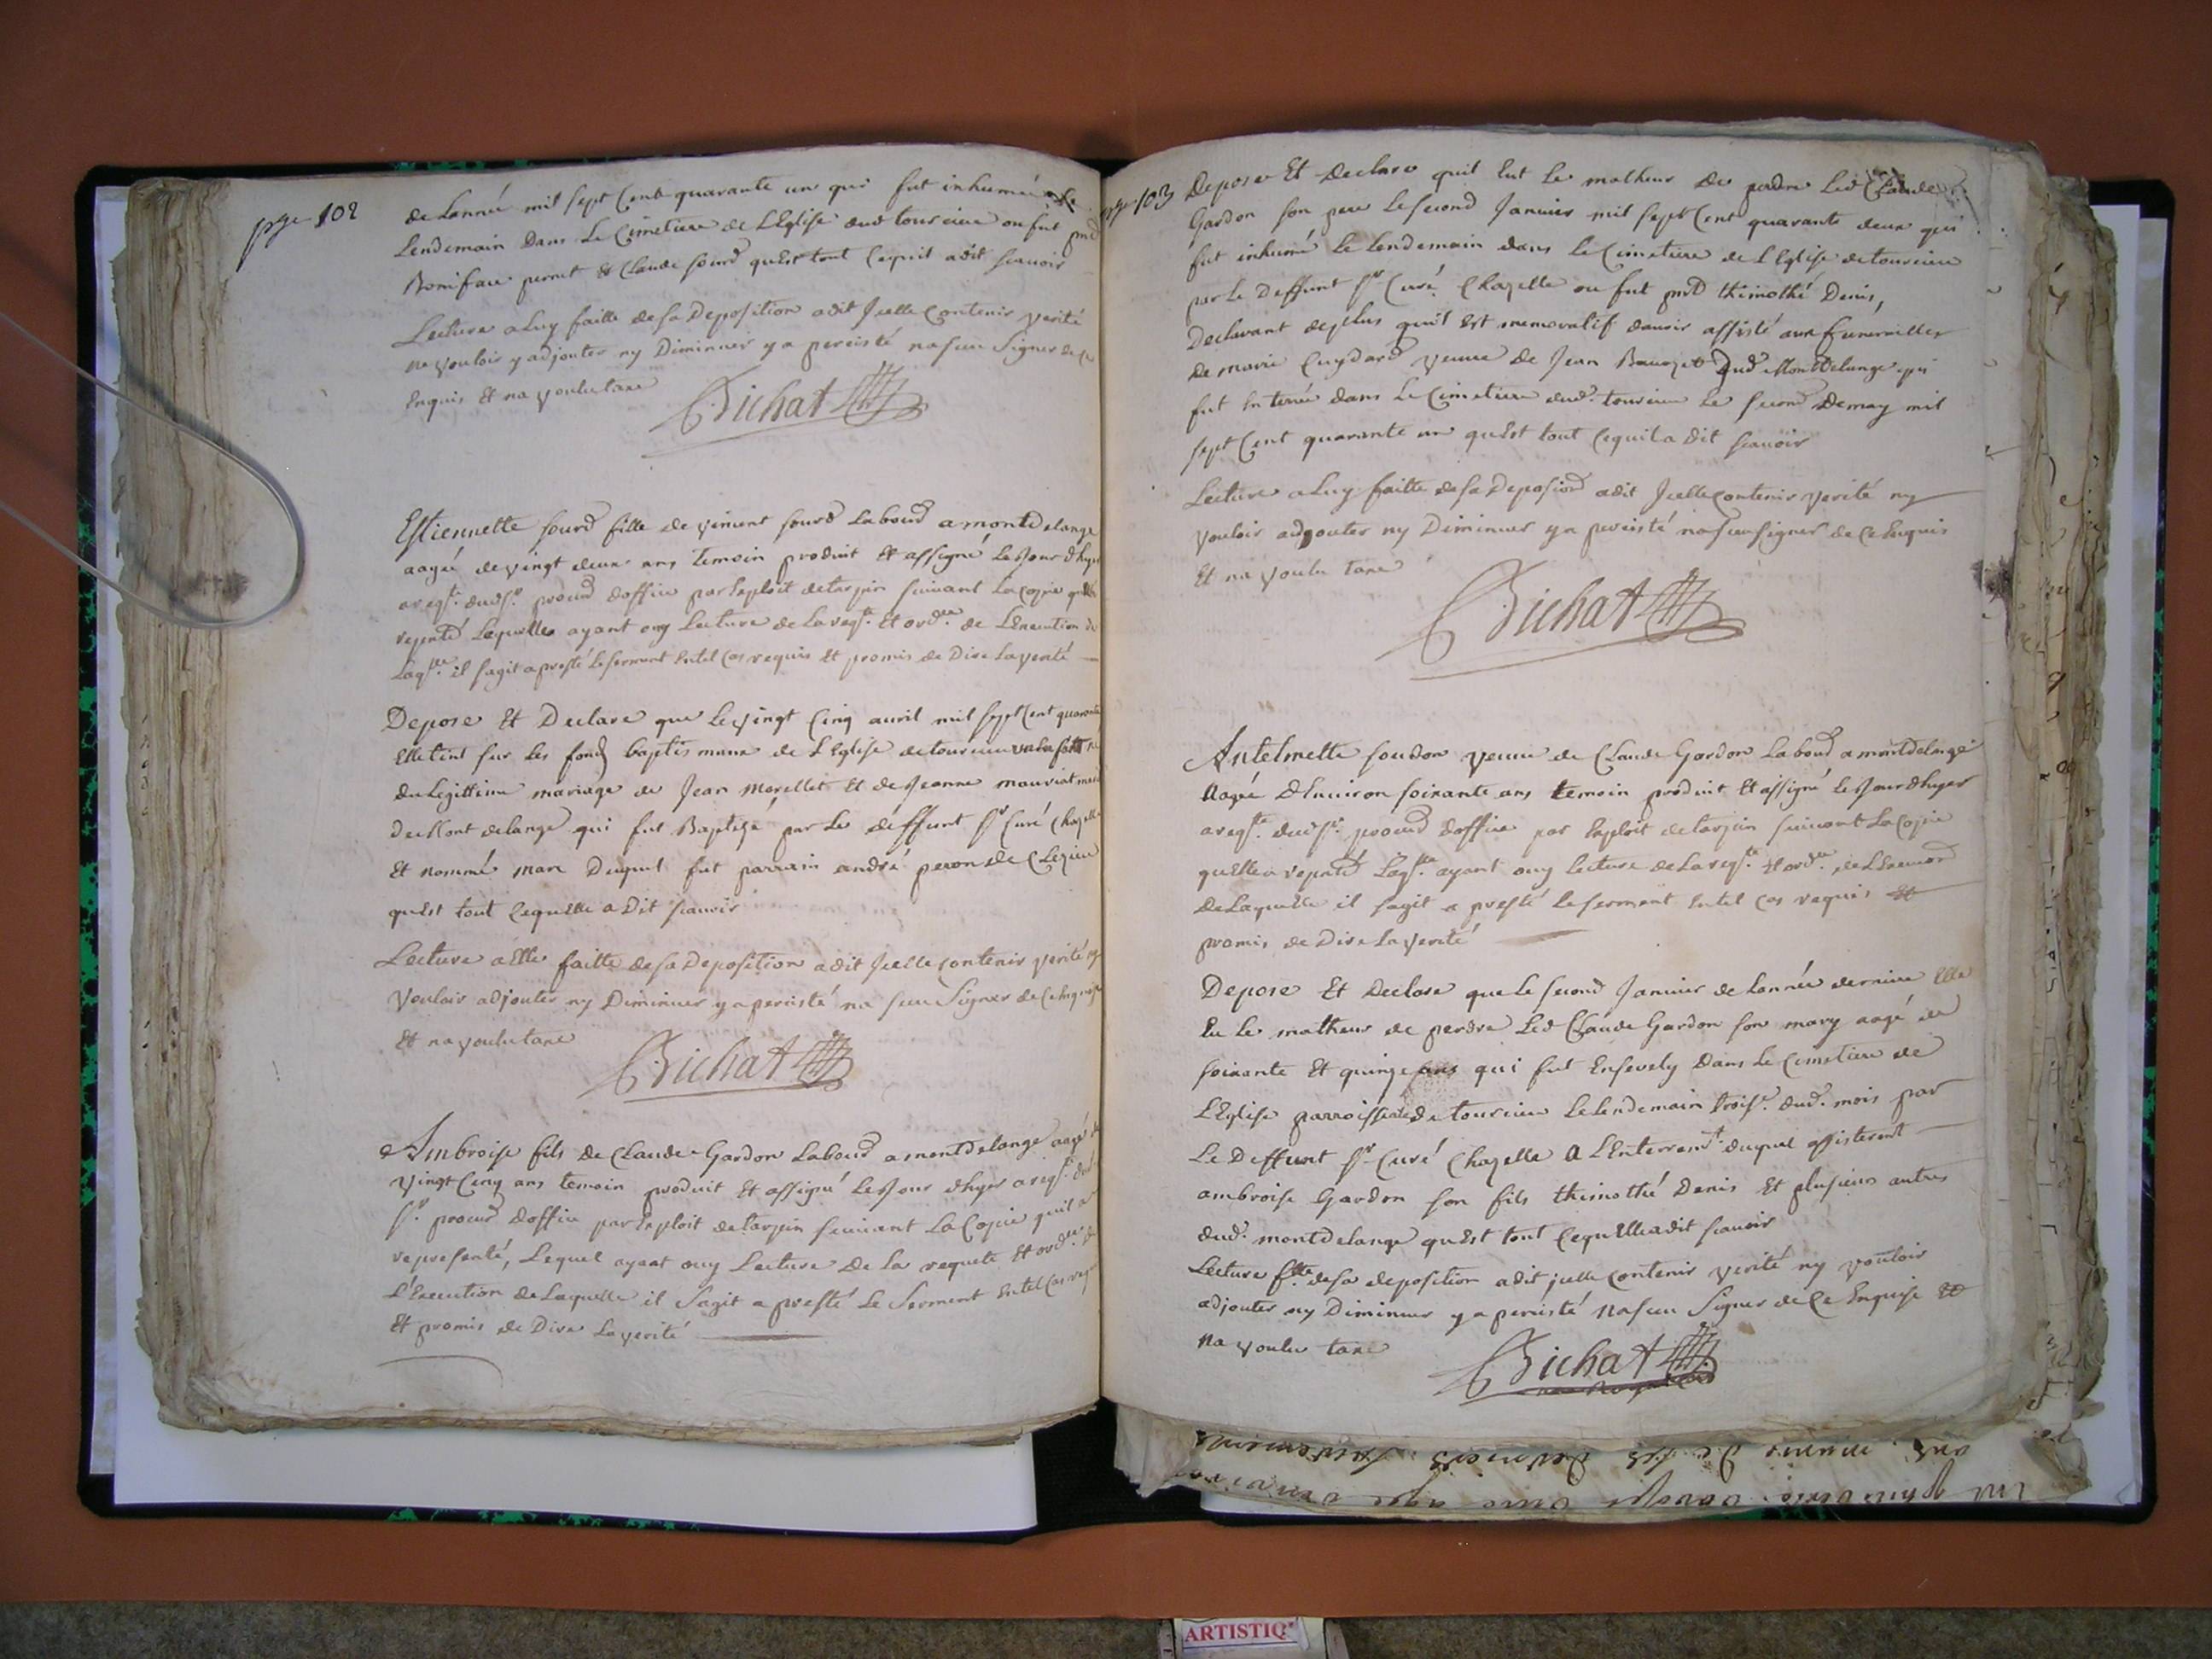 pge 102
de Lanné mil sept Cent quarante un qui fut inhumé Le
Lendemain Dans Le Cimetiere de L'Eglise dud tourcieu ou fut pnt
Boniface pernet et Claude sourd qu'Est tout Cequil adit scauoir
Lecture a Luy faitte desa Deposition adit Jcelle Contenir verité
ne vouloir y adjouter ny Diminuer y a percisté na sceu Signer de Ce
Enquis Et na voulu taxe
Bichat
Estiennette sourd fille de vincent sourd Labourd a montdelange
aagée de vingt deux ans temoin produit Et assigné Le Jour dhyer
areqte. dudSr. procurd doffice par Exploit detarpin suiuant La Copie quelle
reprntd Lequelle ayant ouy Lecture de La reqte. Et ordce. de L'Execution de
Laqlle. il sagit a presté Le serment Entel Cas requis Et promis de Dire La verité
Depose Et Declare que Le vingt Cinq auril mil sept Cent quarante
Elle tint sur les fonds baptismaux de L'Eglise de tourcieu
du Legittime mariage de Jean Morellet Et de Jeanne mauriat
De Mont delange qui fut Baptizé par Le deffunt Sr Curé Chazelle
Et nommé marc Duquel fut parrain andré peron de Clezieu
qu'Est tout Cequelle a Dit scauoir
Lecture a Elle faitte desa Deposition adit Jcelle Contenir verité ny
vouloir adjouter ny Diminuer y a percisté na sceu Signer de Ce Enquise
Et na voulu taxe
Bichat
Ambroise fils de Claude Gardon Labourd a montdelange aagé de
vingt Cinq ans temoin produit Et assigné Le Jour dhyer areqte. dud.
Sr. procurd doffice par Exploit detarpin suiuant La Copie quil a
representé, Lequel ayant ouy Lecture de La requete Et ordce. de
L'Execution de Laquelle il Sagit a presté Le Serment Entel Cas requis
Et promis de Dire La verité
pge 103
Depose Et Declare quil Eut Le malheur de perdre Led Claude
Gardon son pere Le second Januier mil sept Cent quarante deux qui
fut inhumé Le Lendemain dans Le Cimetiere de L'Eglise de tourcieu
par Le Deffunt Sr Curé Chazelle ou fut pnt thimothé Denis,
Declarant deplus quil Est memoratif dauoir assisté aux funerailles
De marie Cuydard veuue de Jean Bauozet Dud Montdelange qui
fut Enterré dans Le Cimetiere dud. tourcieu Le second De may mil
sept Cent quarante un qu'Est tout Cequil a dit scauoir
Lecture a Luy faitte desa Deposiond adit Jcelle Contenir verité ny
vouloir adjouter ny Diminuer y a percisté na sceu signer de Ce Enquis
Et na voulu taxe
Bichat
Antelmette soudon veuue de Claude Gardon Labourd a montdelange
Aagée D'Enuiron soixante ans temoin produit Et assigné Le Jour dhyer
areqte. dudSr. procurd doffice par Exploit detarpin suiuant La Copie
quelle a reprntd Laqlle. ayant ouy Lecture de La reqte Et ordce. de L'Execuond
De Laquelle il sagit a presté Le serment Entel Cas requis Et
promis de Dire La verité
Depose Et Declare que Le second Januier de Lannée derniere Elle
Eu Le malheur de perdre Led Claude Gardon son mary aagé de
soixante Et quinze ans qui fut Enseuely Dans Le Cimetiere de
L'Eglise parroissialle de tourcieu Le Lendemain troise. dud. mois par
Le Deffunt Sr Curé Chazelle A L'Enterremt. duquel assisterent
ambroise Gardon son fils thimothé Denis Et plusieurs autres
dud. montdelange qu'Est tout Cequ'Elle adit scauoir
Lecture ftte desa deposition adit jcelle Contenir verité ny vouloir
adjouter ny Diminuer y a percisté Na sceu Signer de Ce Enquise Et
Na voulu taxe
Bichat
ARTISTIQ